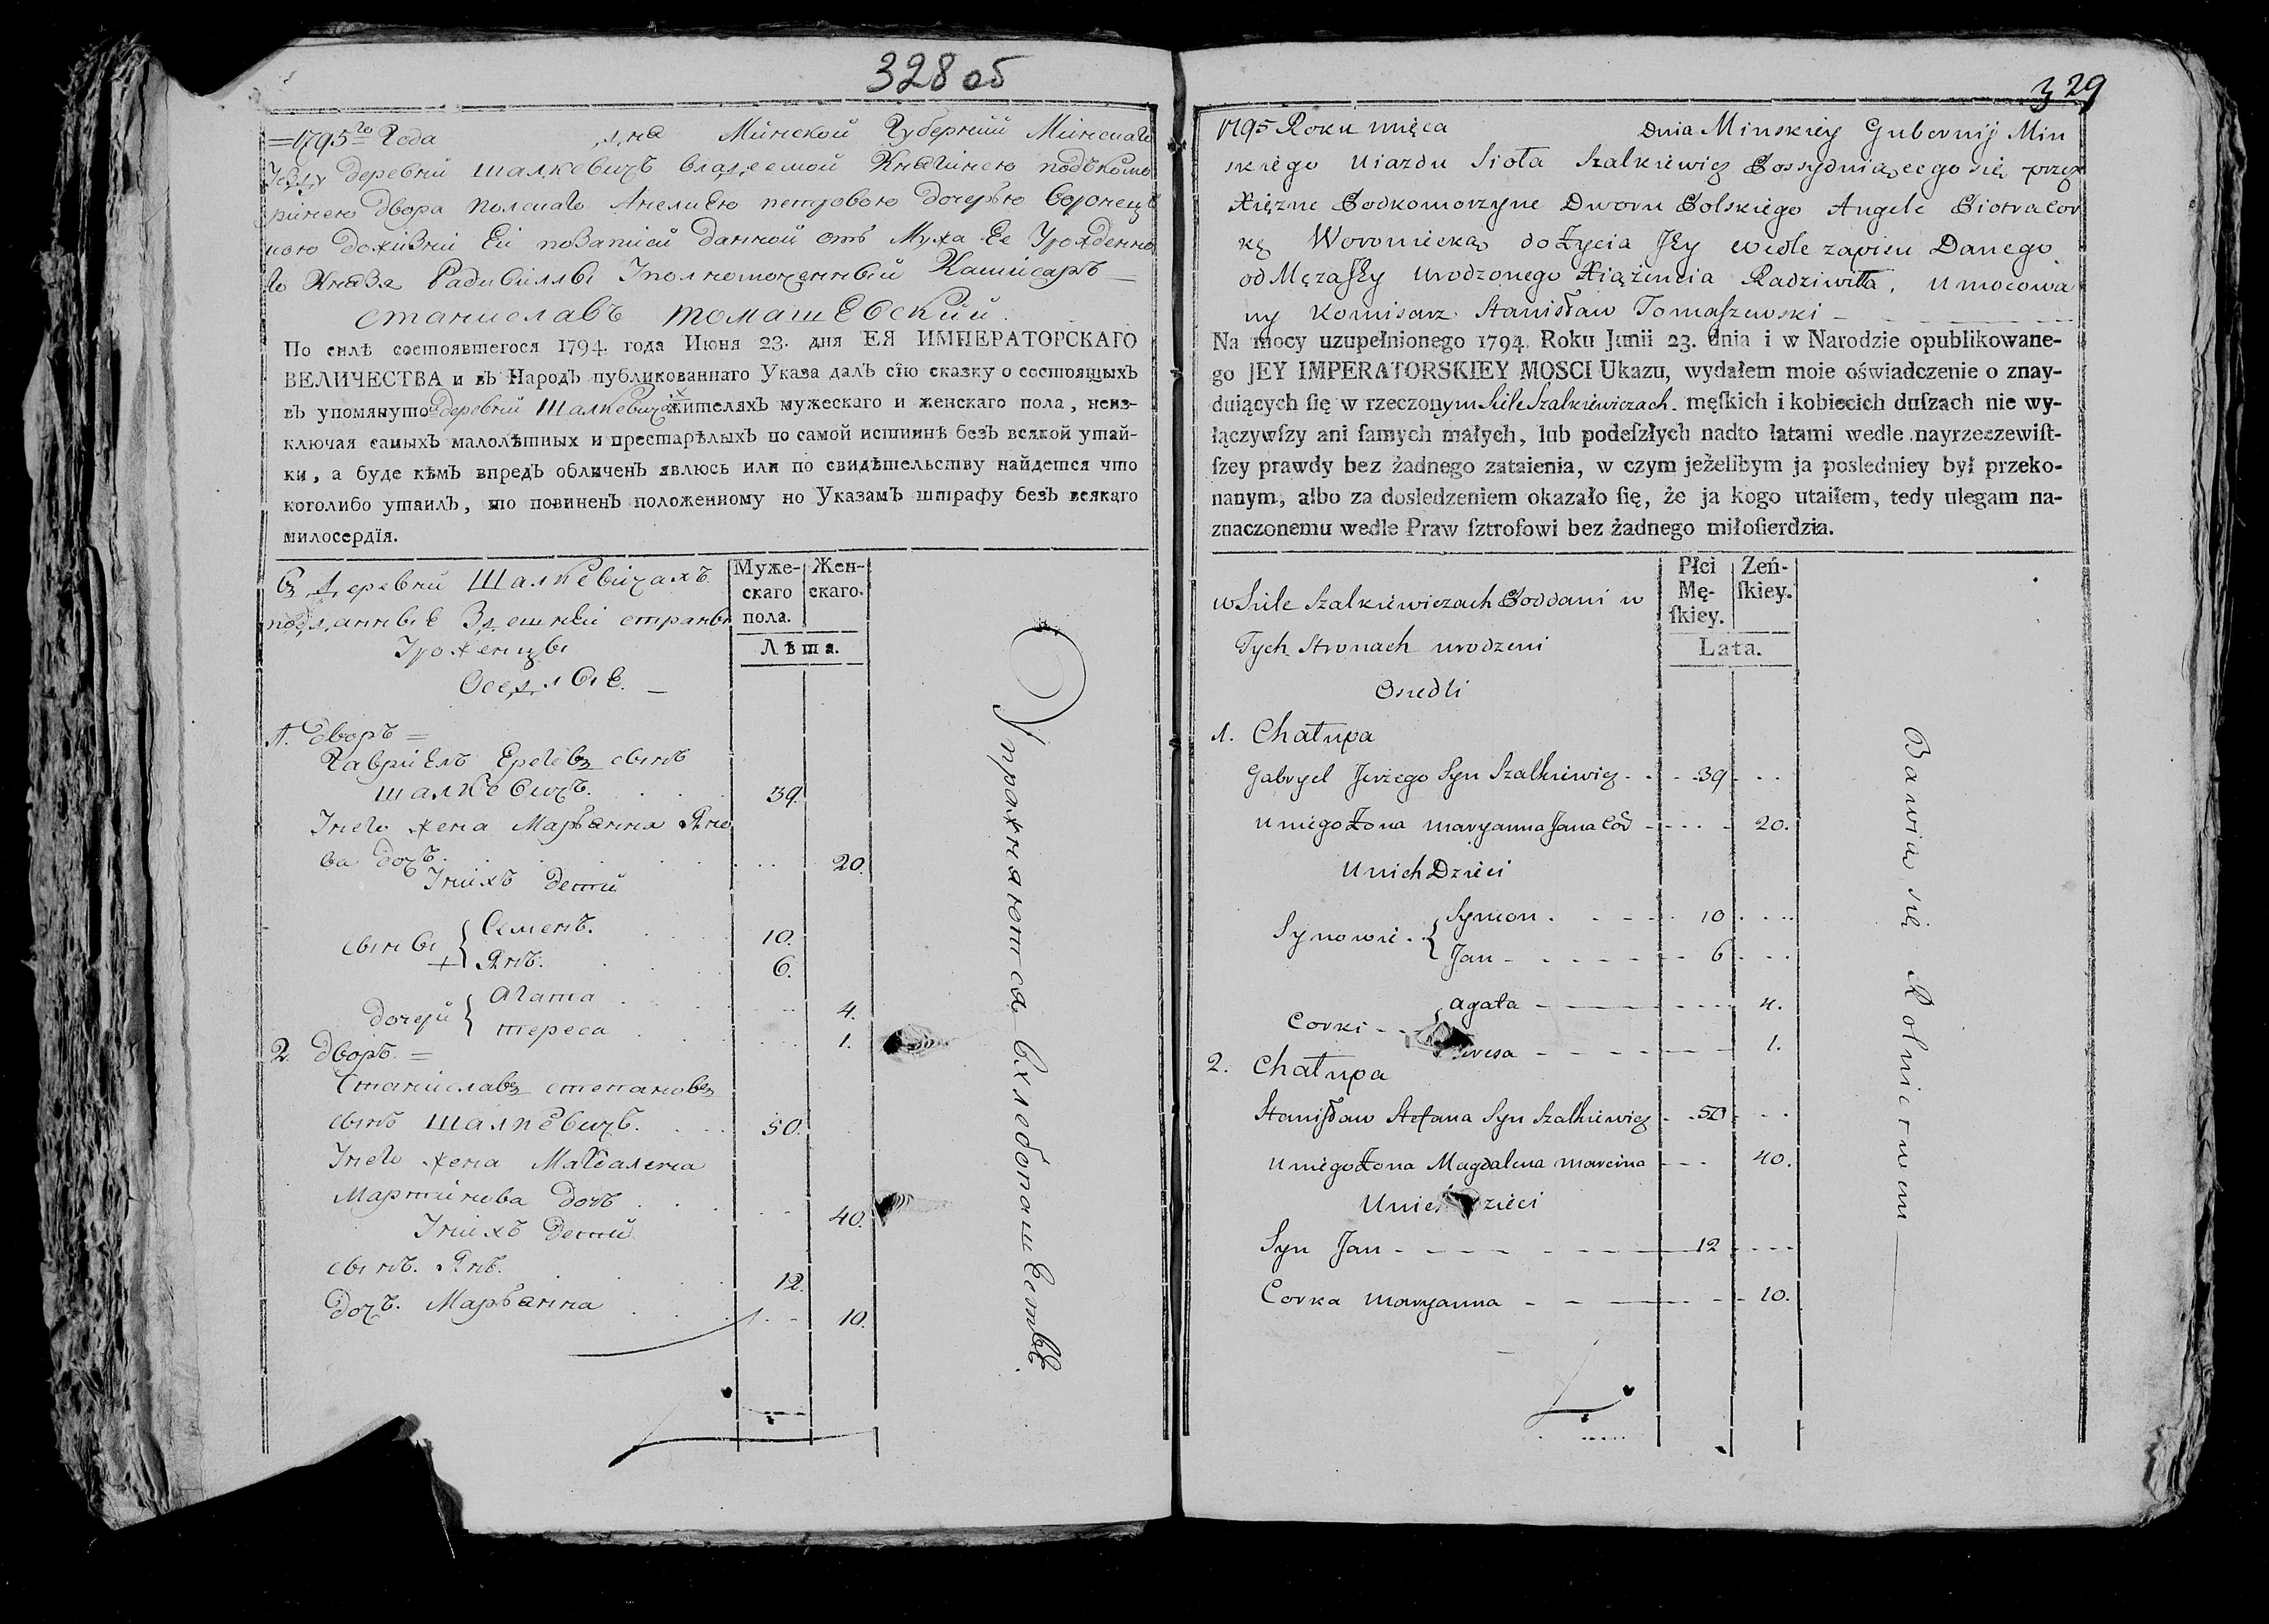 328 об
=1795го Года дня Минской Губернии Минскаго
Уезду деревни Шалкевичъ владеемой Княгинею подъкомо
ринею Двора полскаго Анелиею петровою дочерью Воронец
кою доживнiи Еи позаписи данной отъ Мужа Ее Урожденна
го Князя Радивиллы Уполномоченный Камисаръ —
станиславъ томашевский.
По силѣ состоявшегося 1794. года Июня 23. дня ЕЯ ИМПЕРАТОРСКАГО
ВЕЛИЧЕСТВА и въ Народъ публикованнаго Указа далъ сїю сказку о состоящыхъ
въ упомянутой деревни Шалкевичахъ жителяхъ мужескаго и женскаго пола, неиз-
ключая самыхъ малолѣтныхъ и престарѣлыхъ по самой истиннѣ безъ всякой утай-
ки, а буде кѣмъ впредь обличенъ явлюсь или по свидѣтельству найдется что
коголибо утаилъ, то повиненъ положенному по Указамъ штрафу безъ всякаго
милосердїя.
Въ деревни Шалкевичахъ
подданные Здешней страны
Уроженцы
Оседлые. —
Муже-
скаго
пола.
Жен-
скаго.
Лѣта.
1. дворъ =
Гавриель Ереевъ сынъ
шалкевичъ. 39.
Унего жена Марьянна Яно
ва дочъ. 20.
Унихъ дети
сыны { Семенъ. 10.
+ Янъ. 6.
дочери { Агата 4.
тереса 1.
2. дворъ. =
Станиславъ степановъ
сынъ шалкевичъ. 50.
Унего жена Магдалена
Мартинова дочъ 40.
Унихъ дети
сынъ. Янъ. 12.
дочъ. Марьянна 10.
Упражняются въхлебопашестве.
329
1795 Roku mięca Dnia Minskiey Gubernij Min
skiego Uiazdu Sioła Szalkiewicz Possyduiącego się przez
Xięzne Podkomorzyne Dworu Polskiego Angele Piotra cor
kę Woroniecką do Życia Jey wedle zapisu Danego
od Męza Jey Urodzonego Xiążencia Radziwiłła, Umocowa
ny Komisarz Stanisław Tomaszewski —
Na mocy uzupełnionego 1794. Roku Junii 23. dnia i w Narodzie opublikowane-
go JEY IMPERATORSKIEY MOSCI Ukazu, wydałem moie oświadczenie o znay-
duiących ſię w rzeczonym Siele Szalkiewiczach. męſkich i kobiecich duſzach nie wy-
łączywſzy ani ſamych małych, lub podeſzłych nadto łatami wedle nayrzeczewiſt-
ſzey prawdy bez żadnego zataienia, w czym jeżelibym ja posledniey był przeko-
nanym, albo za dosledzeniem okazało ſię, że ja kogo utaiłem, tedy ulegam na-
znaczonemu wedle Praw ſztrofowi bez żadnego miłoſierdzia.
w Siele Szalkiewiczach Poddani w
Tych Stronach urodzeni
Osiedli
Płci
Mę-
ſkiey.
Zeń-
ſkiey.
Lata.
1. Chałupa
Gabryel Jerzego Syn Szalkiewicz 39
u niego Żona maryanna Jana Cor 20.
U nich Dzieci
Synowie { Symon 10
Jan 6
Corki { agata 4.
1.
2. Chałupa
Stanisław Stefana Syn Szalkiewicz 50
u niego Żona Magdalena marcina 40.
Syn Jan 12
Corka maryanna 10.
Bawią się Rolnictwem